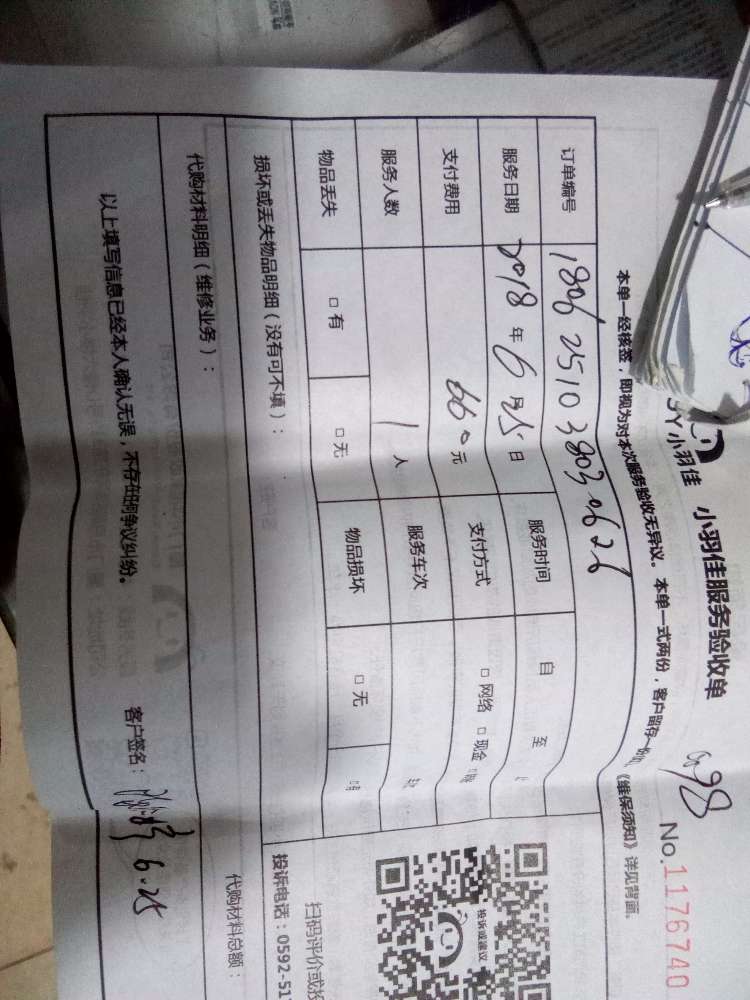 小羽佳 小羽佳服务验收单
No.1176740
本单一经核签,即视为对本次服务验收无异议。本单一式两份,客户留存一份,《维保须知》详见背面。
订单编号
服务日期 2018 年 6 月25 日 服务时间 自 至
支付费用 660 元 支付方式 □ 网络 □ 现金
服务人数 1 人 服务车次
物品丢失 □ 有 □ 无 物品损坏 □ 无
损坏或丢失物品明细(没有可不填):
代购材料明细(维修业务): 代购材料总额:
以上填写信息已经本人确认无误,不存在任何争议纠纷。 客户签名: 6.25
投诉或建议
扫码评价或投
投诉电话:0592-51